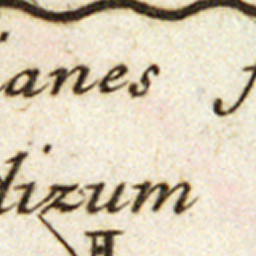 ianes
dizum